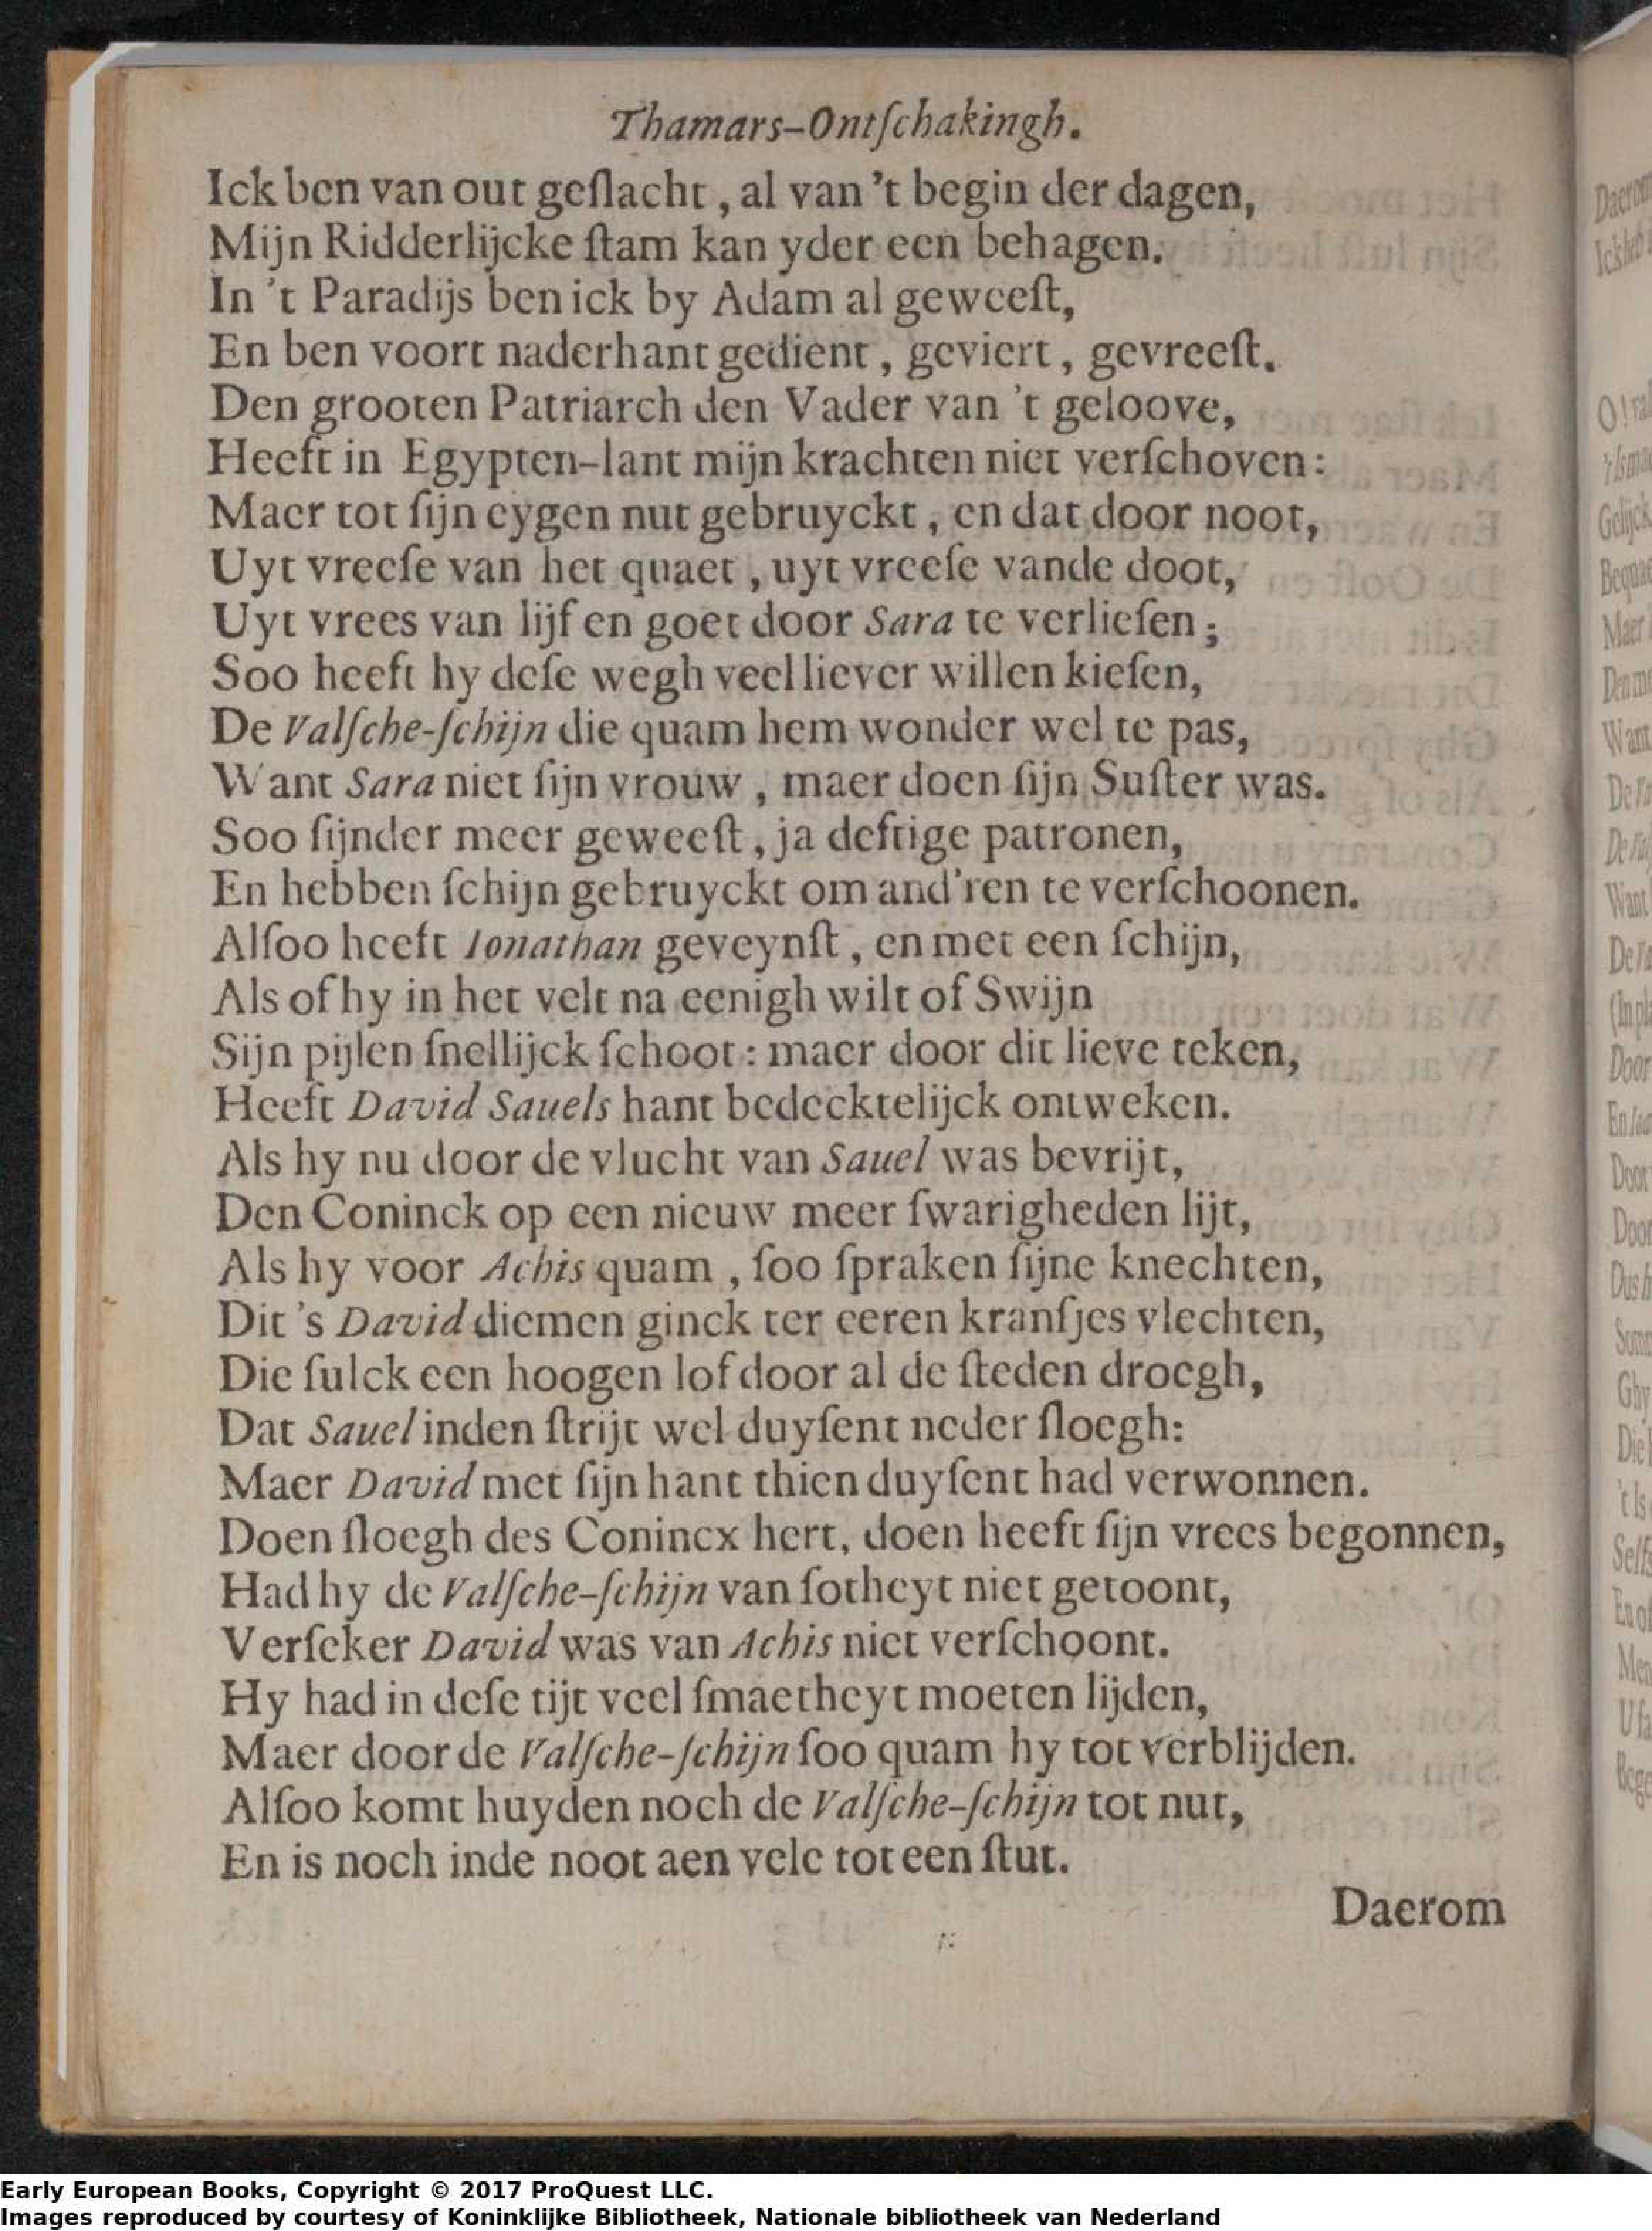 Thamars-Ontſchakingh.
Ick ben van out geſlacht, al van 't begin der dagen,
Mijn Ridderlijcke ſtam kan yder een behagen.
In 't Paradijs ben ick by Adam al geweeſt,
En ben voort naderhant gedient, geviert, gevreeſt.
Den grooten Patriarch den Vader van 't geloove,
Heeft in Egypten-lant mijn krachten niet verſchoven:
Maer tot ſijn eygen nut gebruyckt, en dat door noot,
Uyt vreeſe van het quaet, uyt vreeſe vande doot,
Uyt vrees van lijf en goet door Sara te verlieſen;
Soo heeft hy deſe wegh veel liever willen kieſen,
De Valſche-ſchijn die quam hem wonder wel te pas,
Want Sara niet ſijn vrouw, maer doen ſijn Suſter was.
Soo ſijnder meer geweeſt, ja deftige patronen,
En hebben ſchijn gebruyckt om and'ren te verſchoonen.
Alſoo heeft Ionathan geveynſt, en met een ſchijn,
Als of hy in het velt na eenigh wilt of Swijn
Sijn pijlen ſnellijck ſchoot: maer door dit lieve teken,
Heeft David Sauels hant bedecktelijck ontweken.
Als hy nu door de vlucht van Sauel was bevrijt,
Den Coninck op een nieuw meer ſwarigheden lijt,
Als hy voor Achis quam, ſoo ſpraken ſijne knechten,
Dit 's David diemen ginck ter eeren kranſjes vlechten,
Die ſulck een hoogen lof door al de ſteden droegh,
Dat Sauel inden ſtrijt wel duyſent neder ſloegh:
Maer David met ſijn hant thien duyſent had verwonnen.
Doen ſloegh des Conincx hert, doen heeft ſijn vrees begonnen,
Had hy de Valſche-ſchijn van ſotheyt niet getoont,
Verſeker David was van Achis niet verſchoont.
Hy had in deſe tijt veel ſmaetheyt moeten lijden,
Maer door de Valſche-ſchijn ſoo quam hy tot verblijden.
Alſoo komt huyden noch de Valſche-ſchijn tot nut,
En is noch inde noot aen vele tot een ſtut.
Daerom
Early European Books, Copyright © 2017 ProQuest LLC.
Images reproduced by courtesy of Koninklijke Bibliotheek, Nationale bibliotheek van Nederland